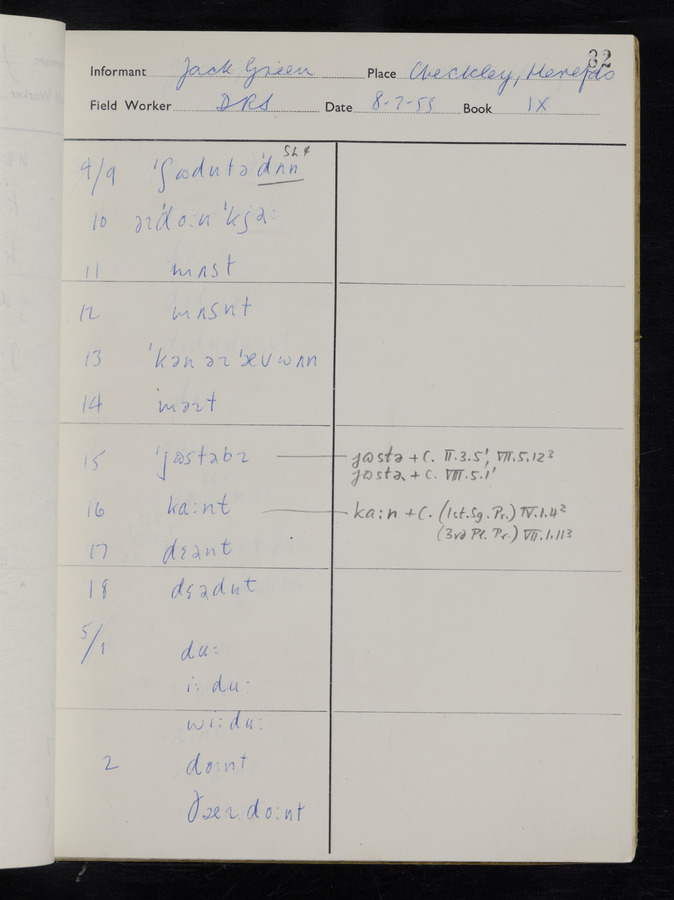 32
Informant Jack Green Place Checkley, Herefds
Field Worker DRS Date 8-7-59 Book IX
4/9 'ʃɷdntə 'dʌn
10 əɪ'do:n 'kjə:
11 mʌst
12 mʌsnt
13
14 məɪt
15 'jɷstəbɪ — jɷstə + C. II.3.5¹, VII.5.12³
jɷstə + C. VIII.5.1¹
16 ka:nt — ka:n + C. (1st.Sg.Pr.) IV.1.4²
(3rd Pl. Pr.) VII.1.11³
17 dɛənt
18 dɛədnt
5/1 du:
i: du:
wi: du:
2 do:nt
do:nt